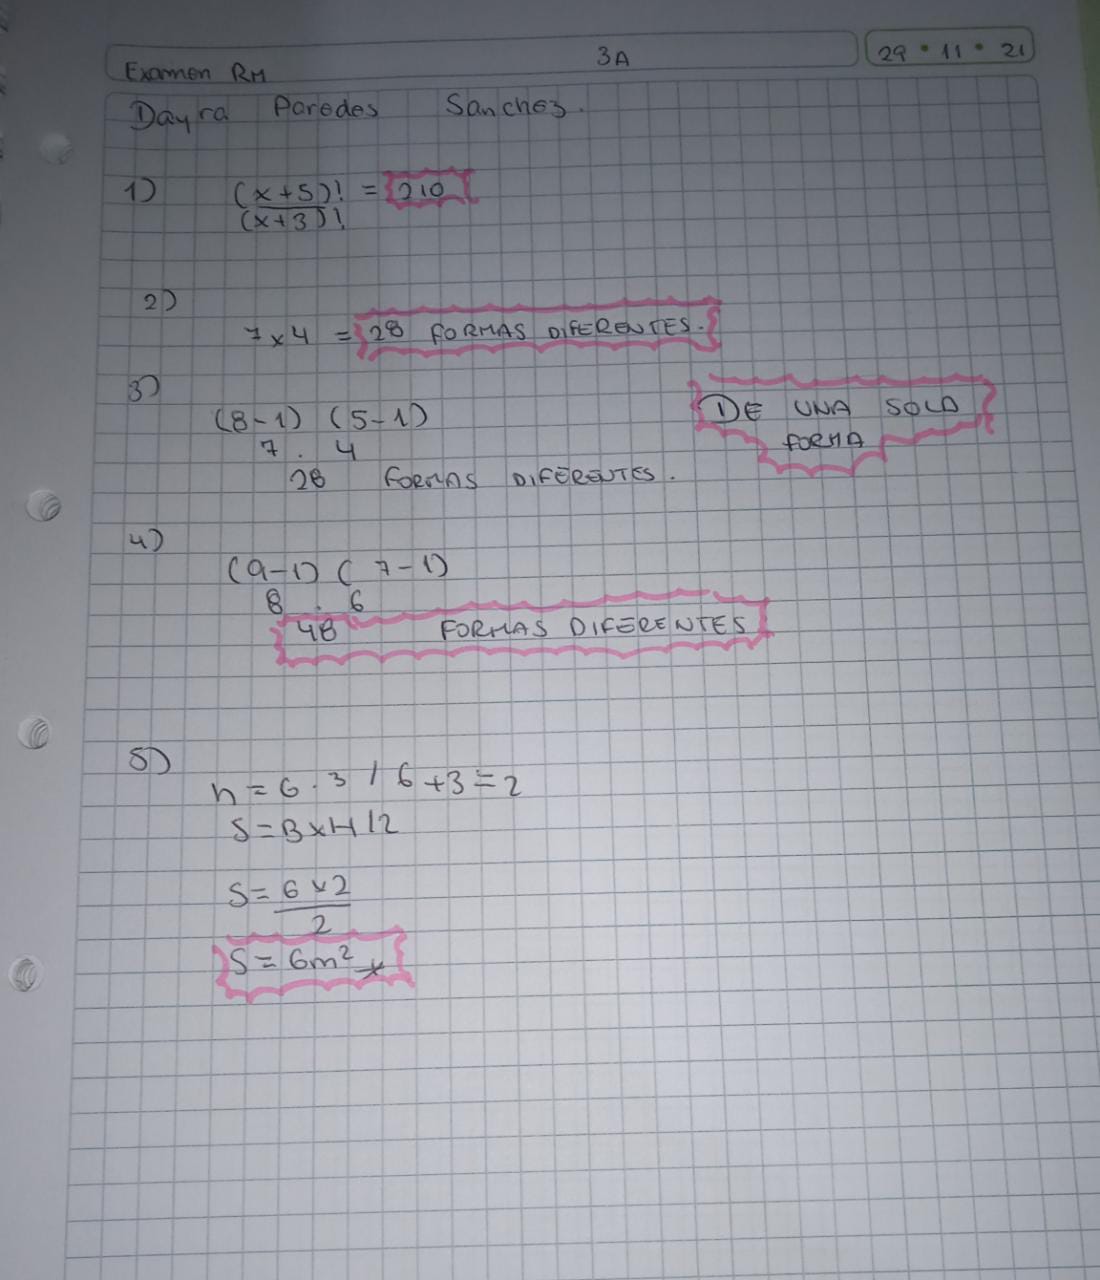 Examen RM 3A 29 • 11 • 21
Dayra Paredes Sanchez.
1) (x+5)! = 210
(x+3)!
2)
7 x 4 = 28 FORMAS DIFERENTES.
3)
(8-1) (5-1)
7 . 4
28 FORMAS DIFERENTES.
DE UNA SOLA
FORMA
4)
(9-1) (7-1)
8 . 6
48 FORMAS DIFERENTES
5)
h = 6 . 3 / 6 + 3 = 2
S = B x H / 2
S = 6 x 2
2
S = 6m²